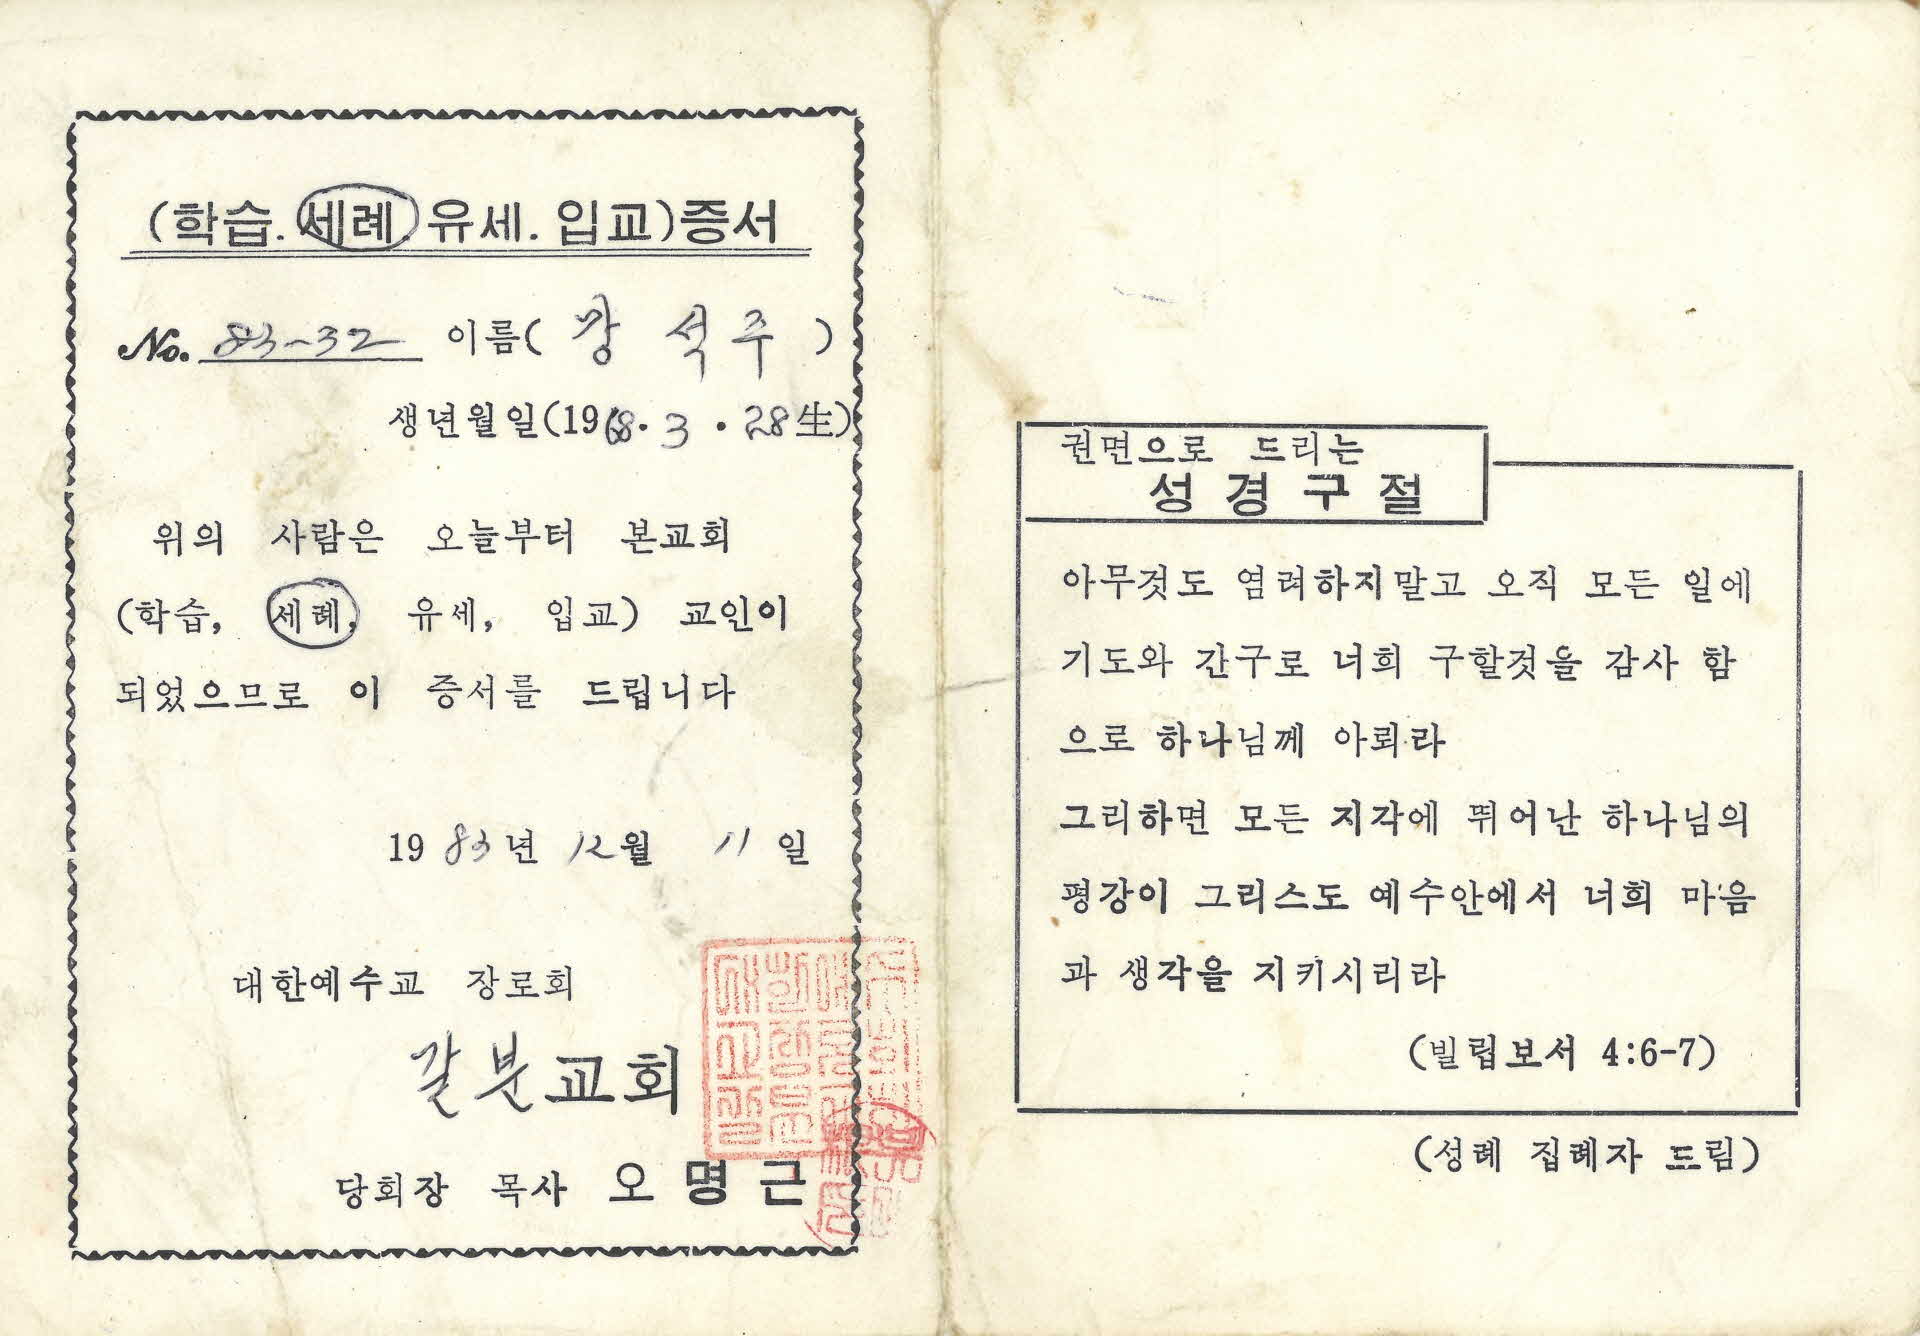 (학습. 세례. 유세. 입교)증서
No. 83-32 이름( 강 석 주 )
생년월일(1968. 3. 28生)
위의 사람은 오늘부터 본교회
(학습, 세례, 유세, 입교) 교인이
되었으므로 이 증서를 드립니다
1983년 12월 11일
대한예수교 장로회
갈분교회
당회장 목사 오명근
권면으로 드리는
성경구절
아무것도 염려하지말고 오직 모든 일에
기도와 간구로 너희 구할것을 감사 함
으로 하나님께 아뢰라
그리하면 모든 지각에 뛰어난 하나님의
평강이 그리스도 예수안에서 너희 마음
과 생각을 지키시리라
(빌립보서 4:6-7)
(성례 집례자 드림)